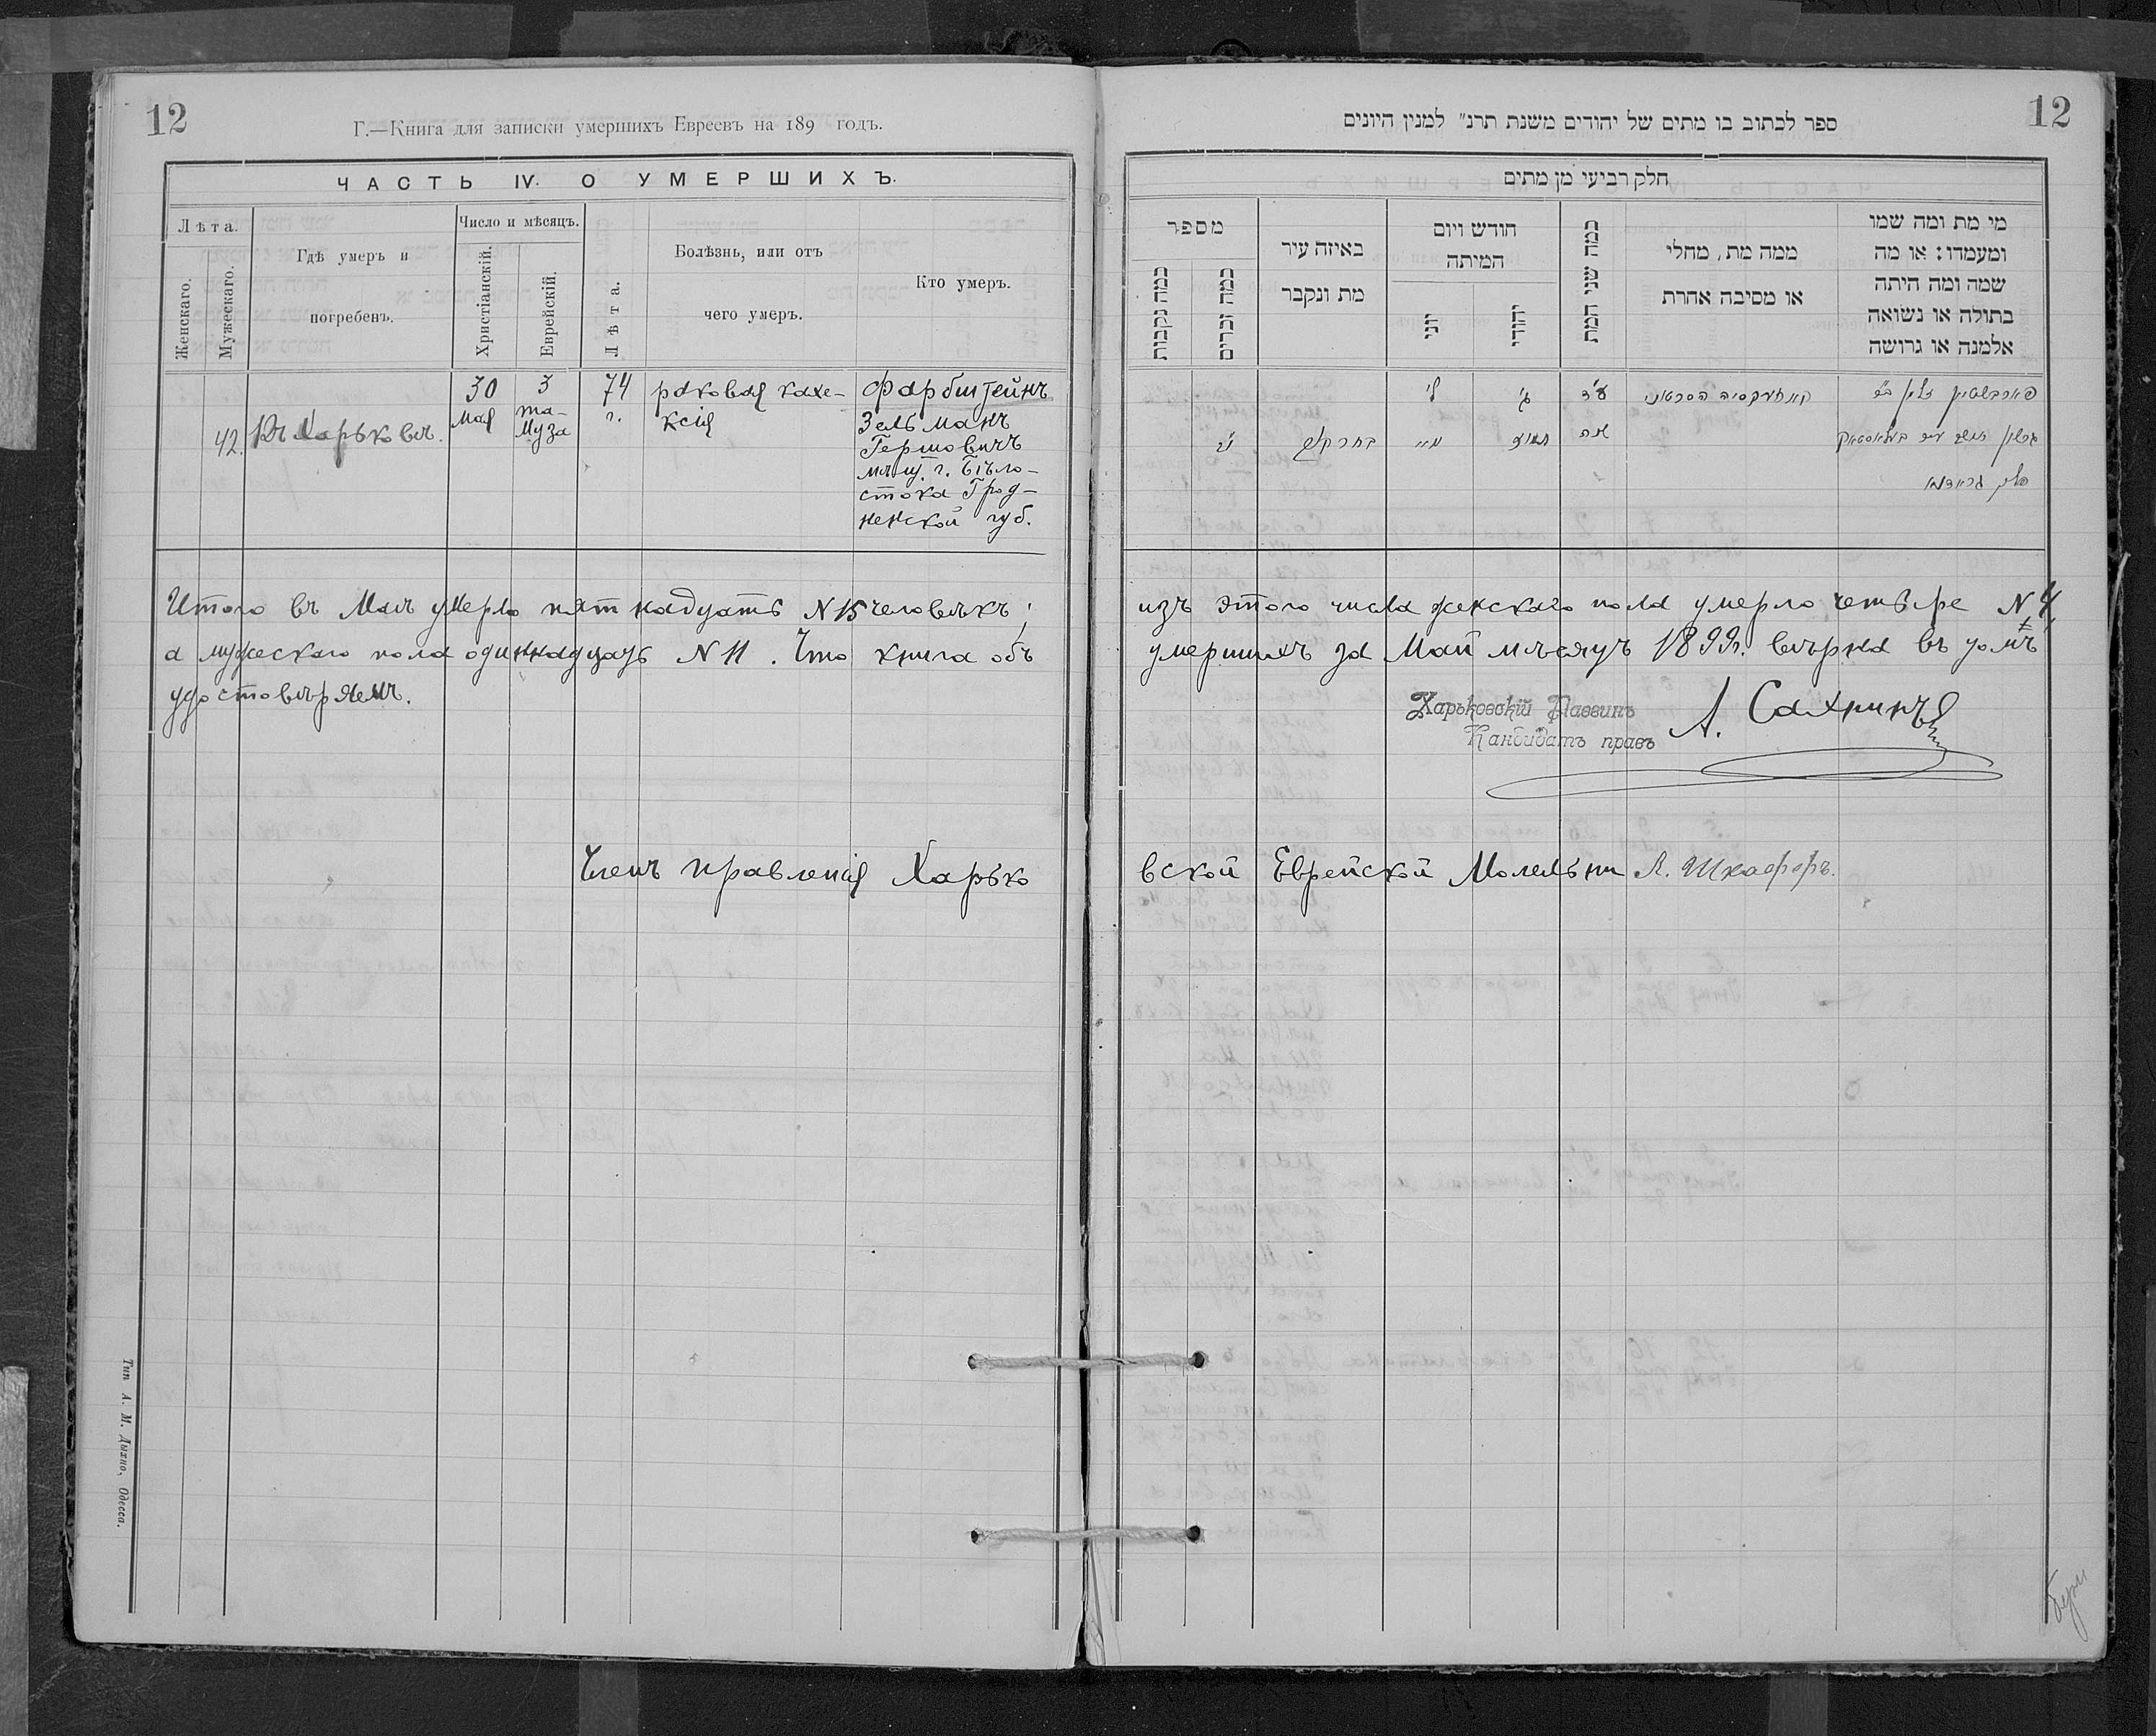 12
Г.—Книга для записки умершихъ Евреевъ на 189 годъ.
ЧАСТЬ IV. О УМЕРШИХЪ.
Лѣта.
Женскаго.
Мужескаго.
Гдѣ умеръ и
погребенъ.
Число и мѣсяцъ.
Христіанскій.
Еврейскій.
Лѣта.
Болѣзнь, или отъ
чего умеръ.
Кто умеръ.
42. Въ Харьковѣ.
30
Мая
3
та-
муза
74
г.
раковая кахе-
ксія
Фарбштейнъ
Зельманъ
Гершовичъ
мѣщ. г. Бѣло-
стока Грод-
ненской губ.
Итого въ Маѣ умерло пятнадцать N 15 человѣкъ;
а мужескаго пола одиннадцать N 11. Что книга объ
удостовѣряемъ.
Членъ правленія Харько
Тип А. М. Дыхно, Одесса.
12
ספר לכתוב בו מתים של יהודים משנת תרנ״ למנין היונים
חלק רביעי מן מתים
מי מת ומה שמו
ומעמדו: או מה
שמה ומה היתה
בתולה או נשואה
אלמנה או גרושה
ממה מת, מחלי
או מסיבה אחרת
כמה שני המת
חודש ויום
המיתה
יהודי
יוני
באיזה עיר
מת ונקבר
מספר
כמה זכרים
כמה נקבות
פארבשטיין זלמן ב״ר
ע״ד
ג׳
ל׳
גרשון
שנה
תמוז
מאי
בחרקוב
изъ этого числа женскаго пола умерло четыре N 4,
умершихъ за Май мѣсяцъ 1899г. вѣрна въ томъ
Харьковскій Раввинъ
Кандидатъ правъ
А. Сахнинъ
вской Еврейской Молельни Л. Шкаффъ.